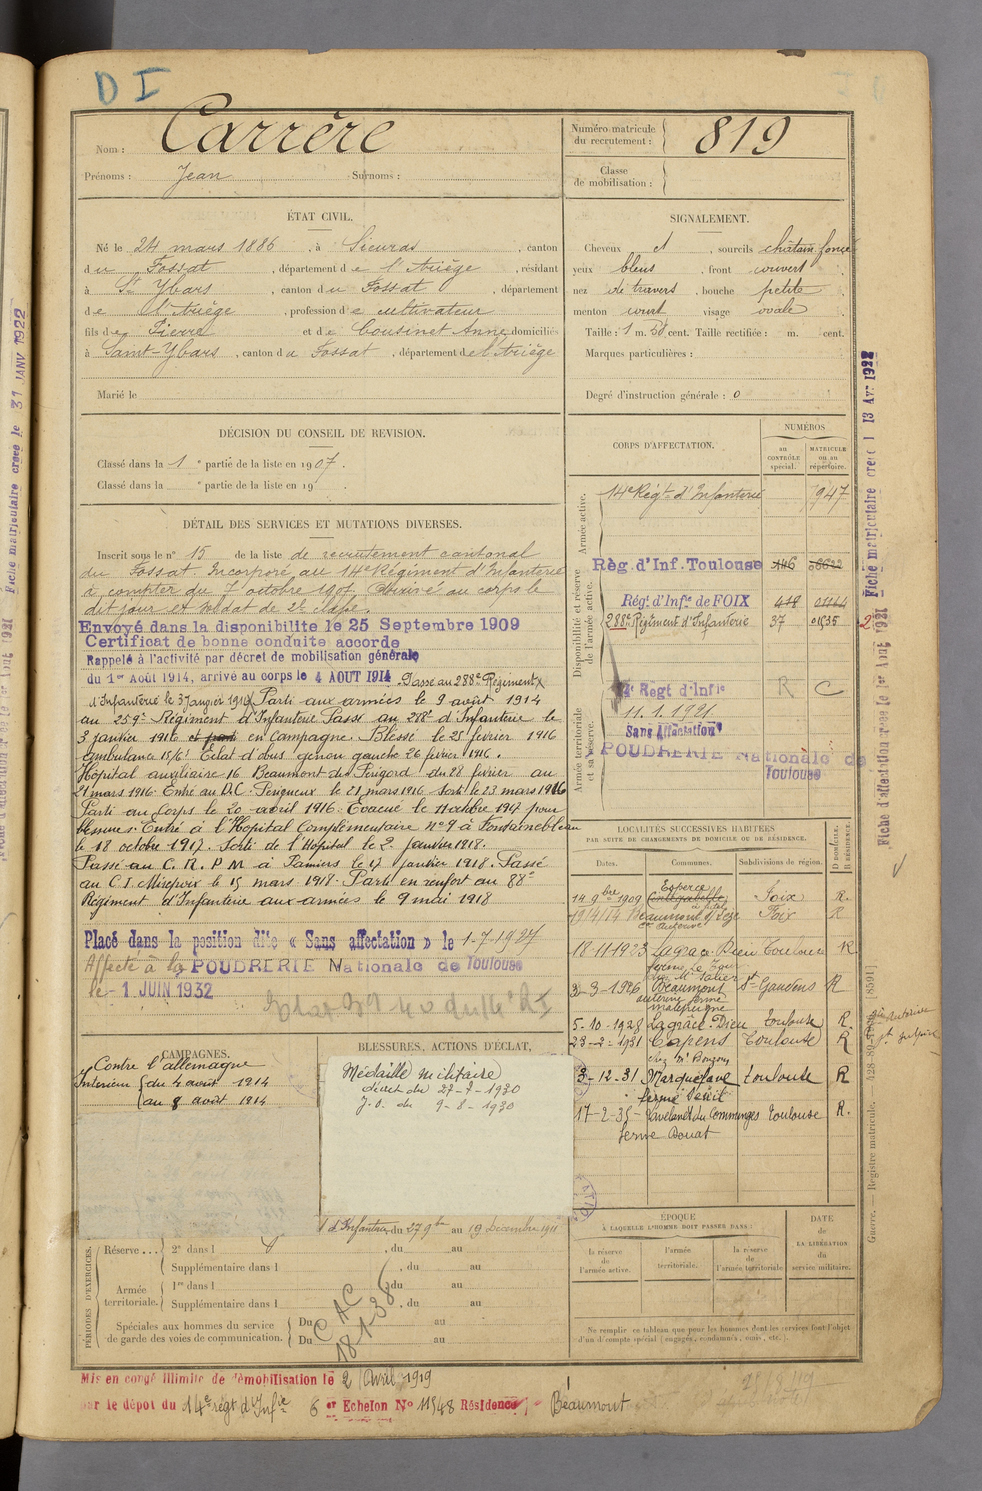 D I
Nom : Carrère
Prénoms : Jean Surnoms :
Numéro matricule du recrutement : 819
Classe de mobilisation :
ÉTAT CIVIL.
Né le 24 mars 1886, à Sieuras, canton
du Fossat, département de l'Ariège, résidant
à St Ybars, canton du Fossat, département
de l'Ariège, profession de cultivateur
fils de Pierre et de Cousinet Anne domiciliés
à Saint-Ybars, canton du Fossat, département de l'Ariège
Marié le
SIGNALEMENT.
Cheveux d, sourcils châtain foncé
yeux bleus, front couvert
nez de travers, bouche petite
menton court visage ovale
Taille : 1 m. 58 cent. Taille rectifiée : m. cent.
Marques particulières :
Degré d'instruction générale : 0
DÉCISION DU CONSEIL DE REVISION.
Classé dans la 1e partie de la liste en 1907.
Classé dans la e partie de la liste en 19
DÉTAIL DES SERVICES ET MUTATIONS DIVERSES.
Inscrit sous le n° 15 de la liste de recrutement cantonal
du Fossat. Incorporé au 14e Régiment d'Infanterie
à compter du 7 octobre 1907, Arrivé au corps le
dit jour et soldat de 2e classe.
Envoyé dans la disponibilite le 25 Septembre 1909
Certificat de bonne conduite accorde
Rappelé à l'activité par décret de mobilisation générale
du 1er Août 1914, arrivé au corps le 4 AOUT 1914 Passé au 288e Régiment
d'Infanterie le 3 Janvier 1916 Parti aux armées le 9 août 1914
au 259e Régiment d'Infanterie Passé au 288e d'Infanterie le
3 janvier 1916 et parti en Campagne. Blessé le 25 février 1916
ambulance 15/6. Eclat d'obus genou gauche 26 février 1916.
Hôpital auxiliaire 16 Beaumont du Périgord du 28 février au
21 mars 1916. Entré au D.C. Périgueux le 21 mars 1916 Sorti le 23 mars 1916
Parti au Corps le 20 avril 1916. Evacué le 11 octobre 1917 pour
blessures. Entré à l'Hopital Complémentaire n°9 à Fontainebleau
le 18 octobre 1917. Sorti de l'Hopital le 2 Janvier 1918.
Passé au C.R.P.M à Pamiers le 17 Janvier 1918. Passé
au C.I. Mirepoix le 15 mars 1918. Parti en renfort au 88e
Régiment d'Infanterie aux armées le 9 mai 1918
Placé dans la position dite « Sans affectation » le 1-7-1927
Affecté à la POUDRERIE Nationale de Toulouse
le 1 JUIN 1932
CORPS D'AFFECTATION.
NUMÉROS
au CONTRÔLE spécial.
MATRICULE ou au répertoire.
Armée active.
14e Régt d'Infanterie 947
Disponibilité et réserve de l'armée active.
Règ. d'Inf. Toulouse 146
Régt d'Infie de FOIX 418 01144
288e Régiment d'Infanterie 37 01535
Armée territoriale et sa réserve.
14e Regt d'Infie R C
11.1.1921
Sans Affectation
POUDRERIE Nationale de
Toulouse
LOCALITÉS SUCCESSIVES HABITÉES
PAR SUITE DE CHANGEMENTS DE DOMICILE OU DE RÉSIDENCE.
Dates. Communes. Subdivisions de région.
D DOMICILE. R RÉSIDENCE.
14 9bre 1909 Esperce Foix R.
Beaumont s/ Leze Foix R
18-11-1923 Lagrace Dieu Toulouse R.
8-3-1926 Beaumont St Gaudens R
5-10-1928 Lagrâce-Dieu Toulouse R.
23-2-1931 Capens Toulouse R
chez Mr Bougon
3-12-31 Marquefave Toulouse R
17-2-35 Lavelanet du Comminges Toulouse R.
ferme Bouat
CAMPAGNES.
Contre l'allemagne
Intérieur du 4 août 1914
au 8 août 1914
BLESSURES, ACTIONS D'ÉCLAT,
Médaille militaire
décret du 27-7-1930
J.O. du 9-8-1930
d'Infanterie du 27 9bre au 19 Décembre 1911
PÉRIODES D'EXERCICES.
Réserve... 2e dans l , du au
Supplémentaire dans l , du au
Armée territoriale. 1re dans l , du au
Supplémentaire dans l , du au
Spéciales aux hommes du service de garde des voies de communication. Du au
Du au
C A C
18-1-38
ÉPOQUE
À LAQUELLE L'HOMME DOIT PASSER DANS :
la réserve de l'armée active.
l'armée territoriale.
la réserve de l'armée territoriale
DATE de LA LIBÉRATION du service militaire.
Ne remplir ce tableau que pour les hommes dont les services font l'objet
d'un décompte spécial (engagés, condamnés, omis, etc.).
Mis en congé illimité de démobilisation le 2 Avril 1919
par le dépot du 14e régt d'Infie 6 er Echelon N° 11548 Résidence Beaumont
Fiche matriculaire créée le 31 JANV 1922
Fiche matriculaire créée l 13 Avr 1922
Fiche d'affectation créée le 1er Août 1921
Guerre. — Registre matricule.